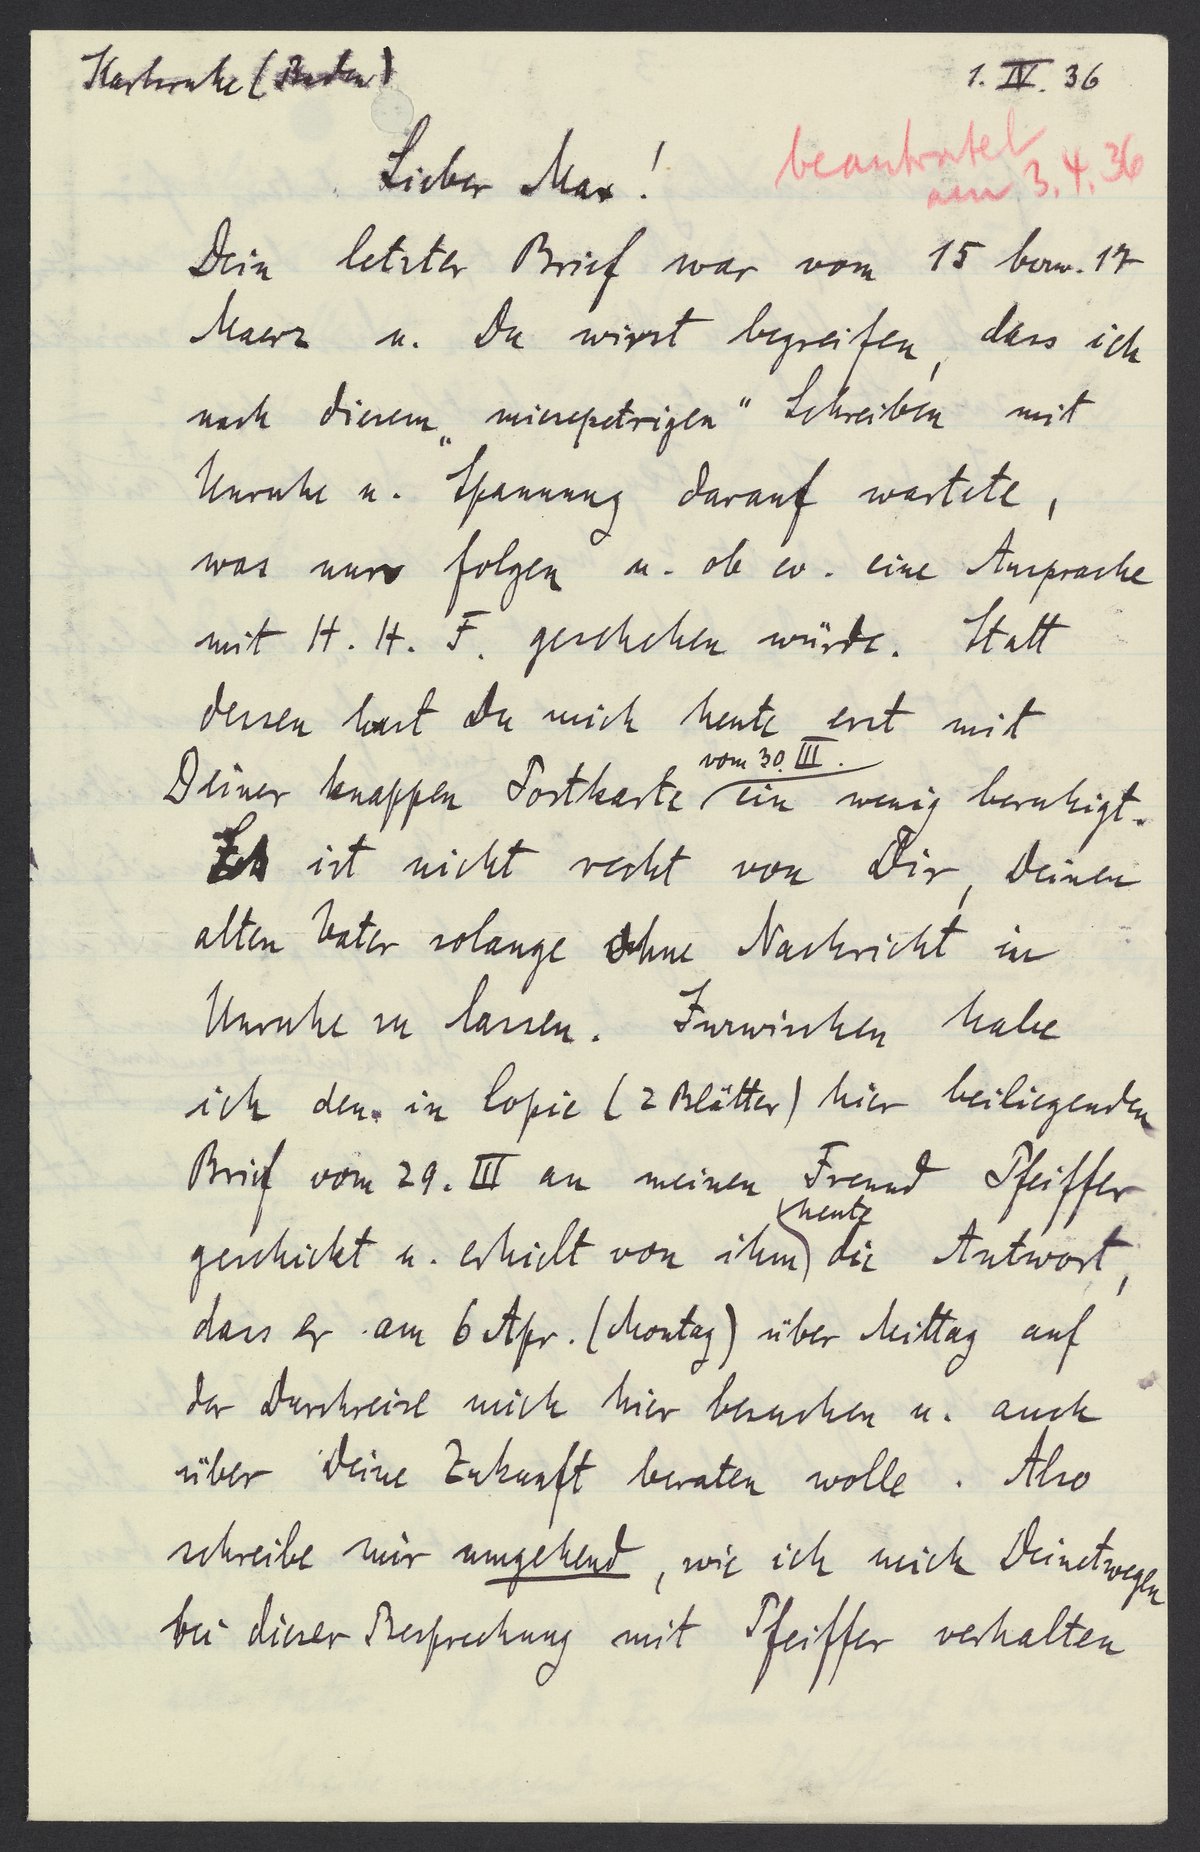 Karlsruhe (Baden)
1. IV. 36
beantwortet
am 3. 4. 36
Lieber Max!
Dein letzter Brief war vom 15 bezw. 17
Maerz u. Du wirst begreifen, dass ich
nach diesem „miesepetrigen" Schreiben mit
Unruhe u. Spannung darauf wartete,
was nun folgen u. ob ev. eine Aussprache
mit H. H. F. geschehen würde. Statt
dessen hast Du mich heute erst mit
vom 30. III.
Deiner knappen Postkarte ein wenig beruhigt.
Es ist nicht recht von Dir, Deinen
alten Vater solange ohne Nachricht in
Unruhe zu lassen. Inzwischen habe
ich den in Copie (2 Blätter) hier beiliegenden
Brief vom 29. III an meinen Freund Pfeiffer
heute
geschickt u. erhielt von ihm die Antwort,
dass er am 6 Apr. (Montag) über Mittag auf
der Durchreise mich hier besuchen u. auch
über Deine Zukunft beraten wolle. Also
schreibe mir umgehend, wie ich mich Deinetwegen
bei dieser Besprechung mit Pfeiffer verhalten